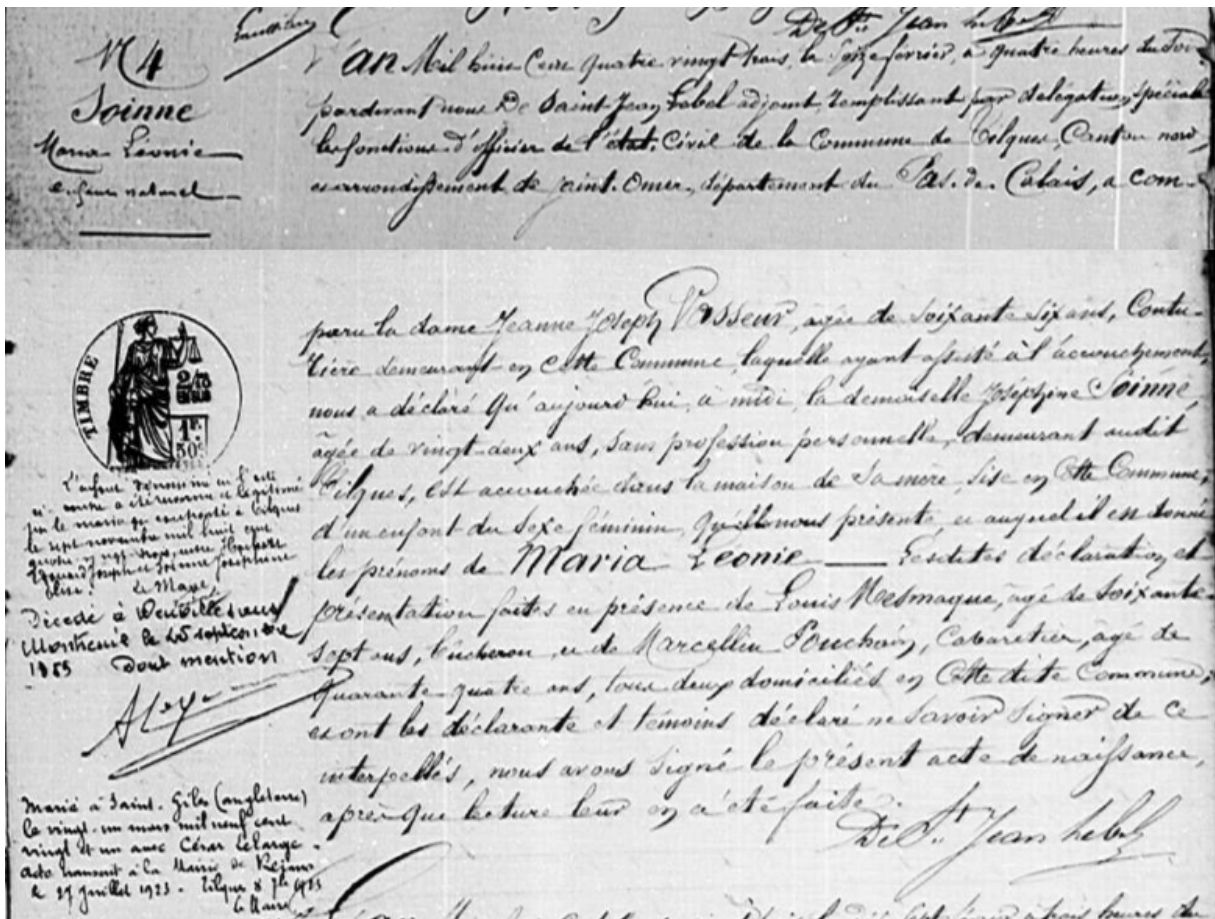 De St Jean Lebel
N 4
Soinne
Maria Léonie
enfant naturel
L'an Mil huit Cent quatre vingt trois, le seize février, à quatre heures du soir
pardevant nous De Saint Jean Lebel adjoint, remplissant par délégation spéciale
les fonctions d'officier de l'état civil de la Commune de Tilques, Canton nord
et arrondissement de Saint-Omer, département du Pas-de-Calais, a com-
paru la dame Jeanne Joseph Vasseur, agée de soixante six ans, Coutu-
rière demeurant en cette Commune, laquelle ayant assisté à l'accouchement,
nous a déclaré qu'aujourd'hui, à midi, la demoiselle Joséphine Soinne
âgée de vingt-deux ans, sans profession personnelle, demeurant audit
Tilques, est accouchée dans la maison de sa mère, sise en cette Commune,
d'un enfant du sexe féminin, qu'elle nous présente, et auquel il est donné
les prénoms de Maria Léonie — Lesdites déclaration et
présentation faites en présence de Louis Mesmaque, agé de soixante-
sept ans, bucheron, et de Marcellin Pouchain, Cabaretier, âgé de
quarante quatre ans, tous deux domiciliés en cette dite Commune,
et ont les déclarante et témoins déclaré ne savoir signer de ce
interpellés, nous avons signé le présent acte de naissance,
après que lecture leur en a été faite.
De St Jean Lebel
TIMBRE
2/10
1F.
50c.
L'enfant dénommé en l'acte
ci-contre a été reconnu et légitimé
par le mariage contracté à Tilques
le sept novembre mil huit cent
quatre vingt trois, entre
Joseph et Soinne Joséphine
Le Maire,
Décédé à Neuville sous
Montreuil le 25 septembre
1959
Dont mention
Marié à Saint-Giles (angleterre)
le vingt-un mars mil neuf cent
vingt et un avec César Lelarge -
acte transcrit à la Mairie de
le 27 juillet 1923 - Tilques 8 1923
Le Maire
heures du